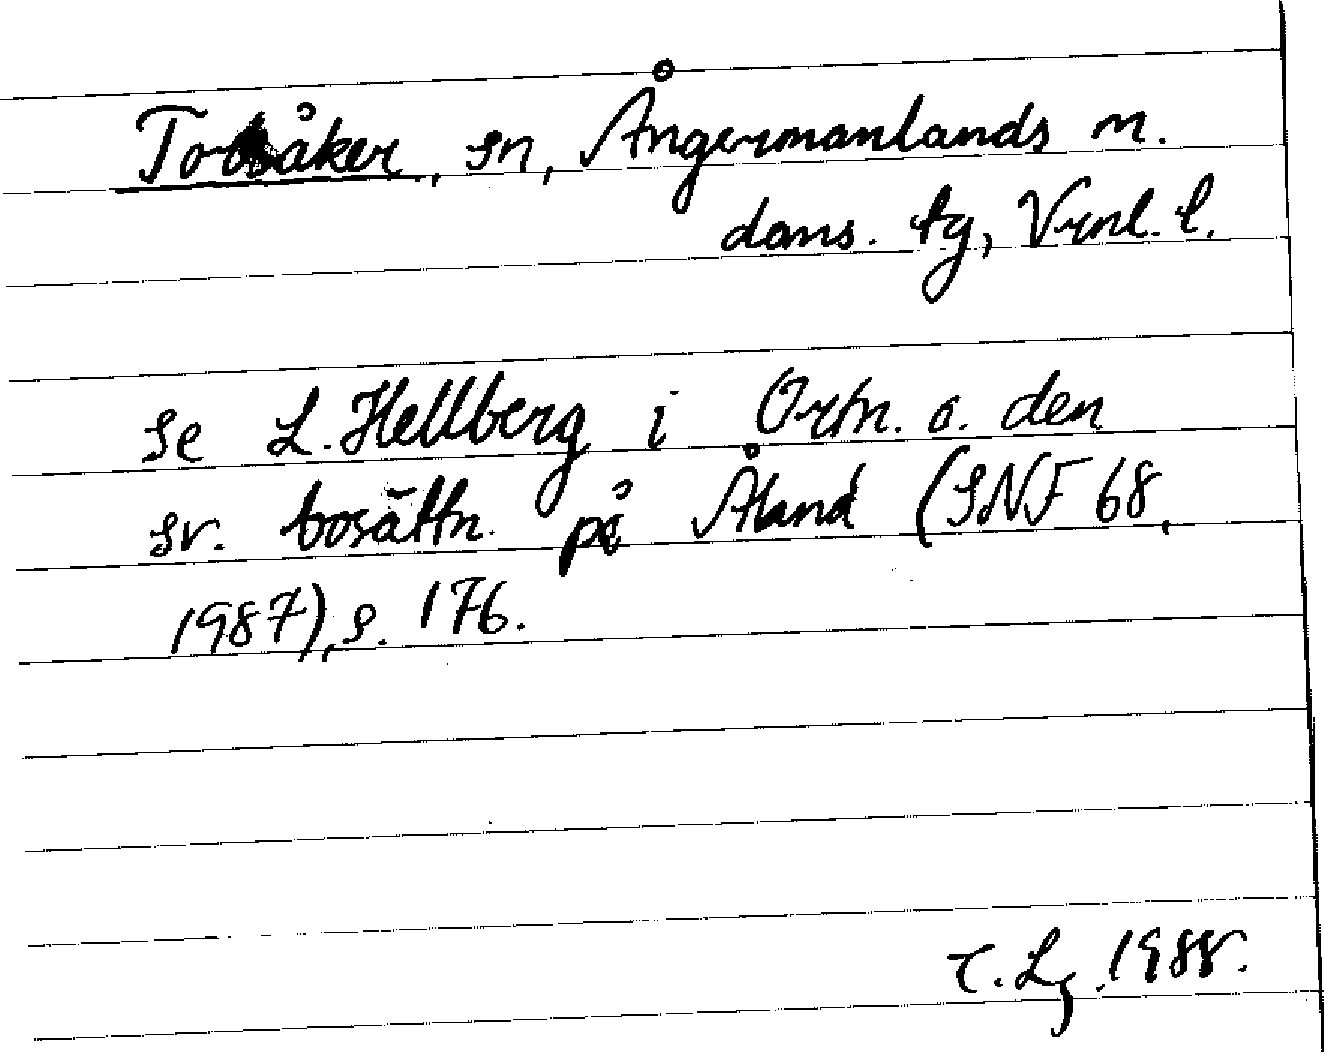 Torsåker, sn, Ångermanlands m.
doms. tg, Vrnl. l.
se L. Hellberg i Ortn. o. den
sv. bosättn. på Åland (SNF 68,
1987), s. 176.
C. Lg 1988.